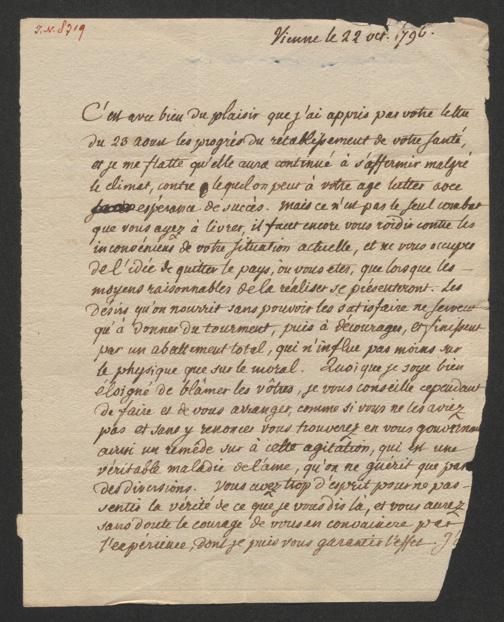 J.N. 8719
Vienne le 22 oct. 1796.
C'est avec bien du plaisir que j'ai appris pas votre lettre
du 23 aout les progrès du rétablissement de votre santé,
et je me flatte qu'elle aura continué à s'affermir malgré
le climat, contre lequel on peut à votre age lutter avec
espérance de succès. Mais ce n'est pas le seul combat
que vous ayez à livrer, il faut encore vous roidir contre les
inconvéniens de votre situation actuelle, et ne vous occuper
de l'idée de quitter le pays, ou vous etes, que lorsque les
moyens raisonnables de la réaliser se présenteront. Les
désirs qu'on nourrit sans pouvoir les satisfaire ne servent
qu'à donner du tourment, puis à décourager, et finissent
par un abattement total, qui n'influe pas moins sur
le physique que sur le moral. Quoique je soye bien
éloigné de blâmer les vôtres, je vous conseille cependant
de faire et de vous arranger, comme si vous ne les aviez
pas et sans y renoncer vous trouverez en vous gouvernant
ainsi un remède sur à cette agitation, qui est une
véritable maladie de l'ame, qu'on ne guérit que par
des diversions. Vous avez trop d'esprit pour ne pas
sentir la vérité de ce que je vous dis là, et vous aurez
sans doute le courage de vous en convaincre par
l'expérience, dont je puis vous garantir l'effet.